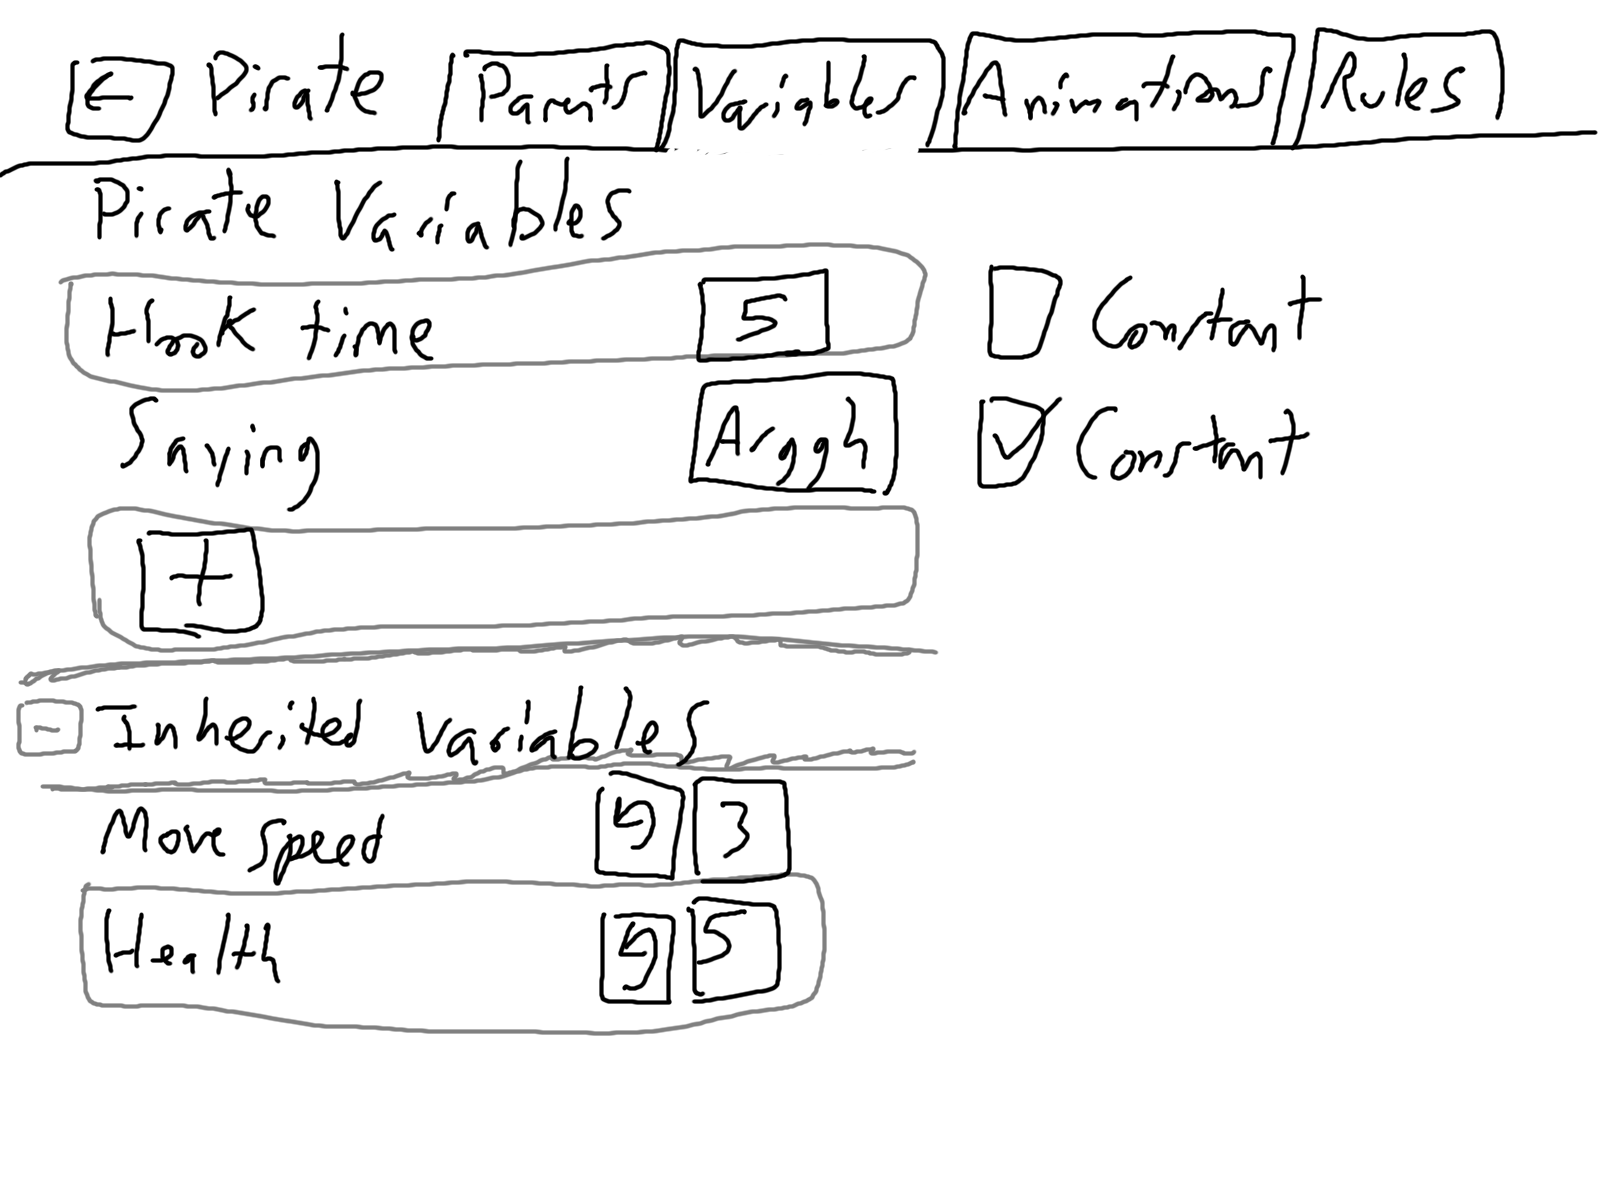 ← Pirate Parents Variables Animations Rules
Pirate Variables
Hook time 5 Constant
Saying Arggh Constant
+
- Inherited variables
Move speed 3
Health 5